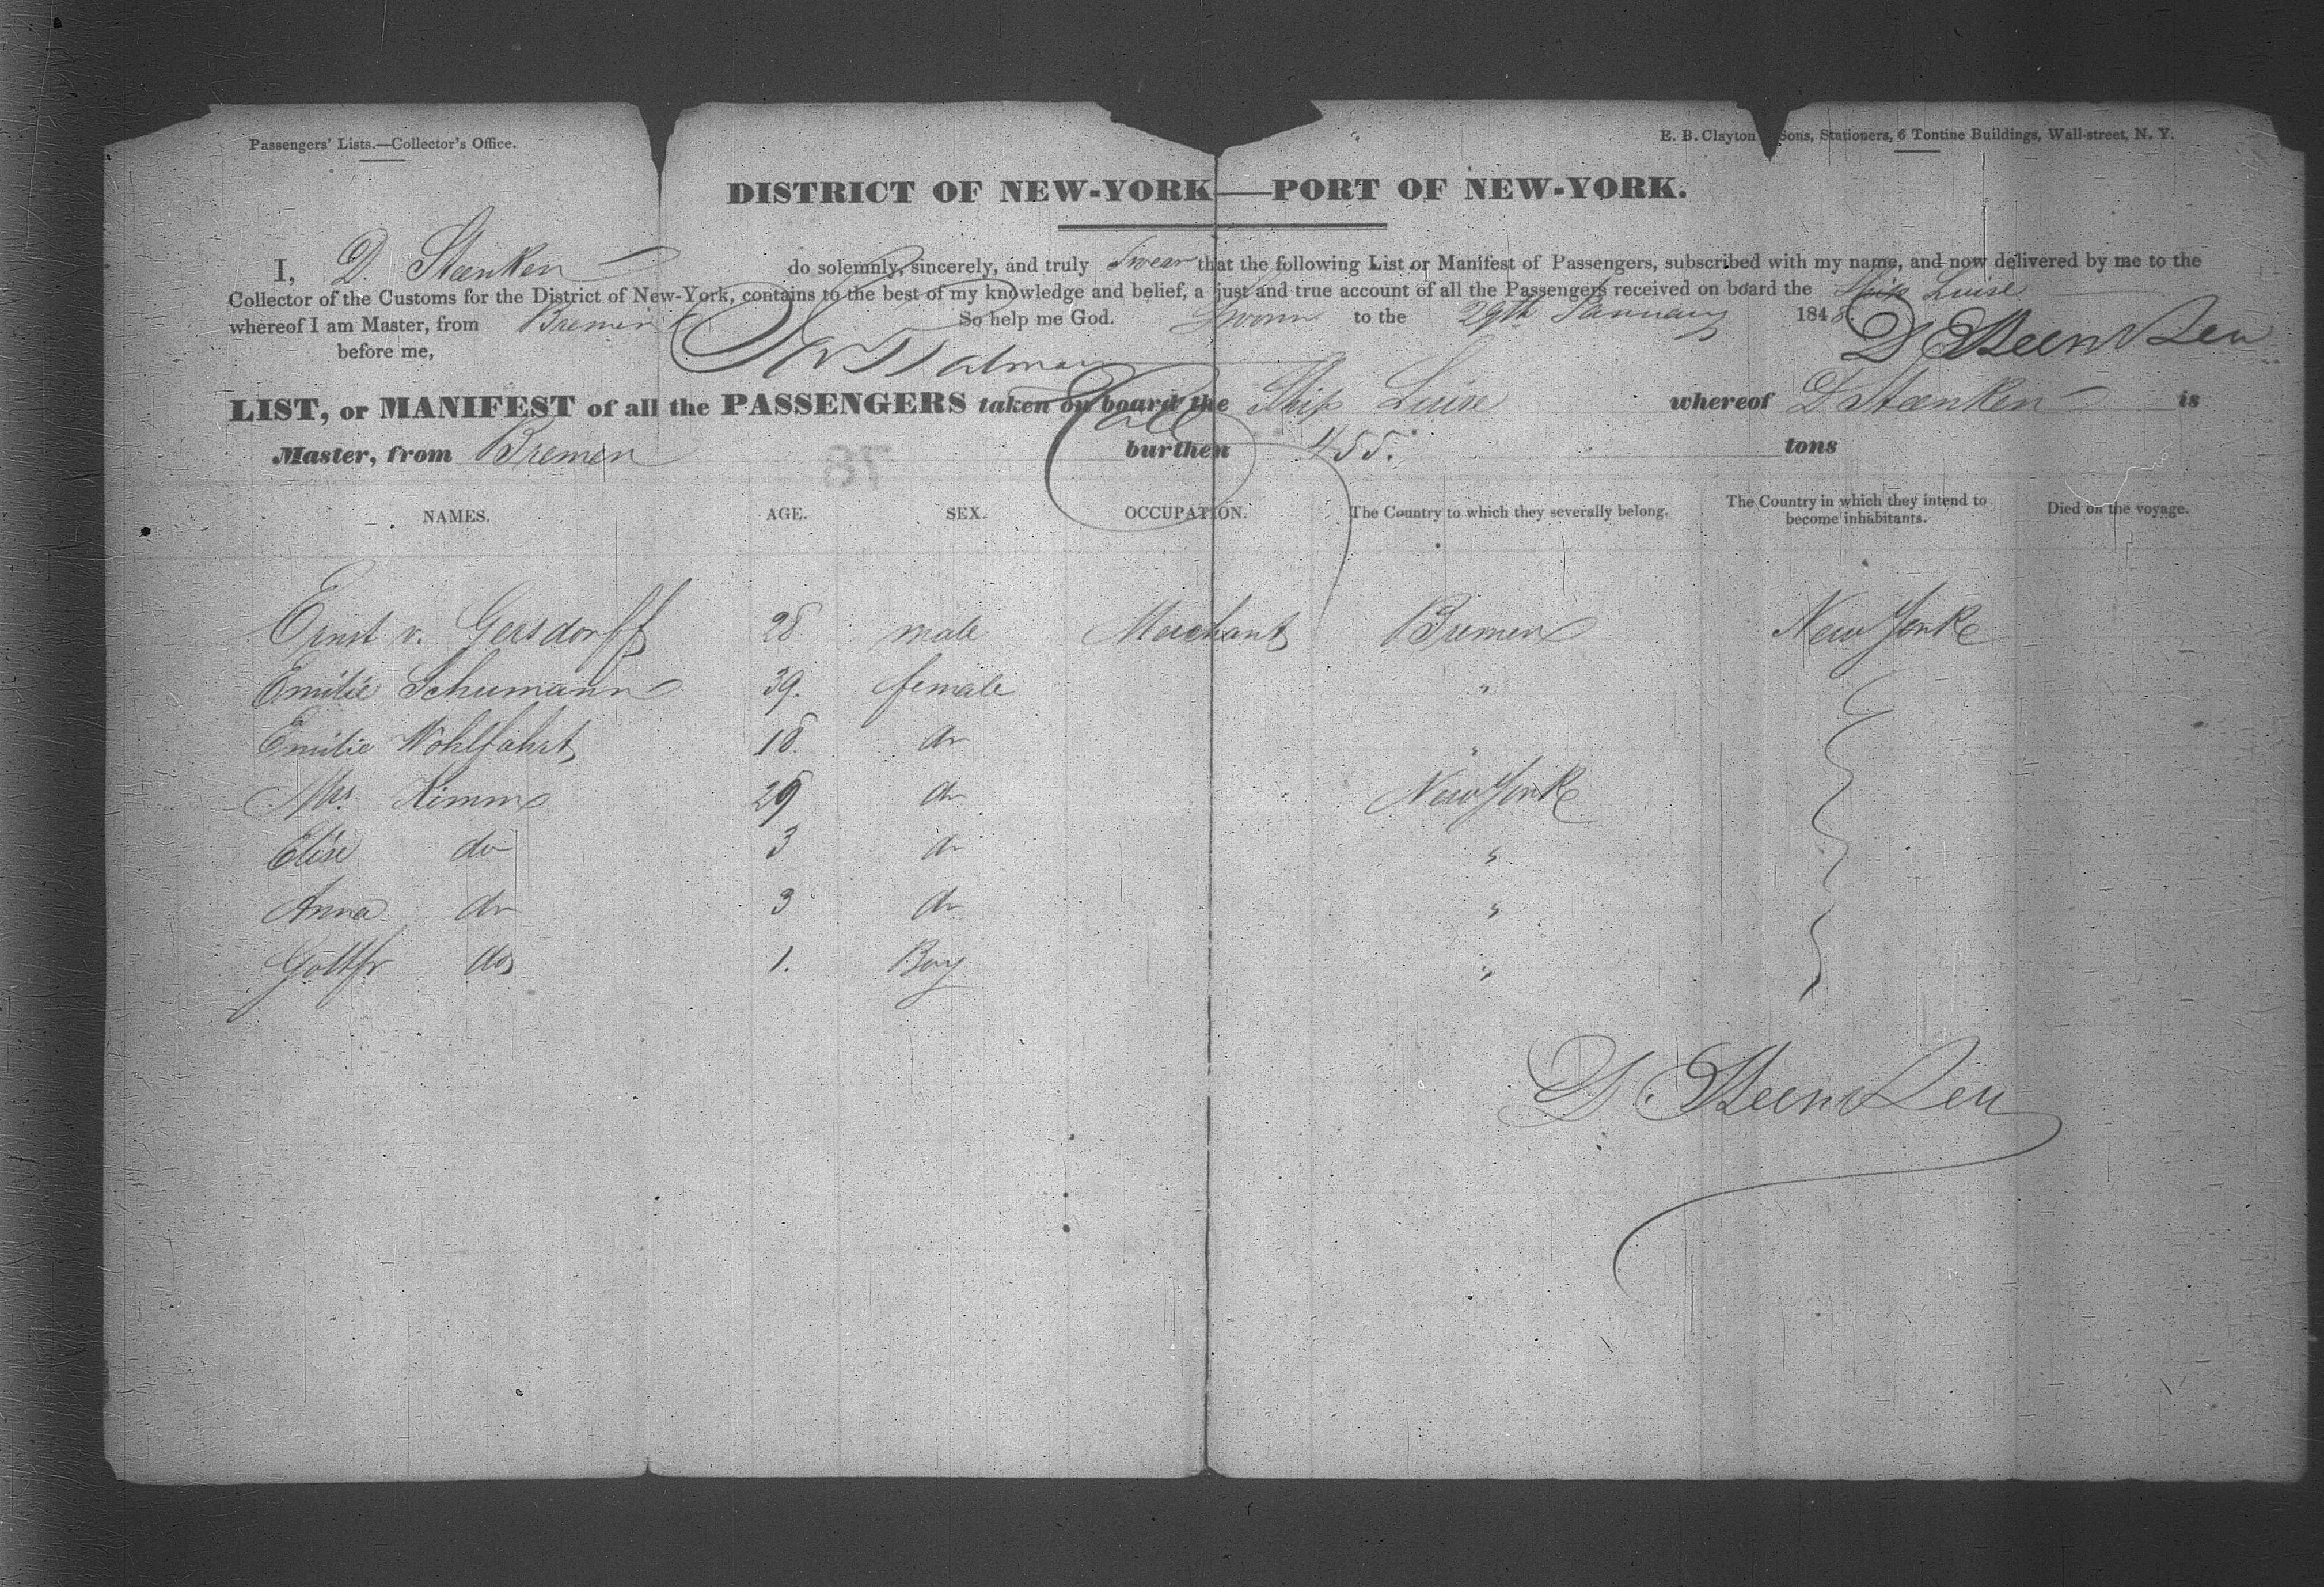 Passengers' Lists.—Collector's Office.
E. B. Clayton Sons, Stationers, 6 Tontine Buildings, Wall-street, N. Y.
DISTRICT OF NEW-YORK—PORT OF NEW-YORK.
I, D. Steenken do solemnly, sincerely, and truly swear that the following List or Manifest of Passengers, subscribed with my name, and now delivered by me to the
Collector of the Customs for the District of New-York, contains to the best of my knowledge and belief, a just and true account of all the Passengers received on board the Ship Luise
whereof I am Master, from Bremen So help me God. Sworn to the 29th January 1848
before me, D Steenken
LIST, or MANIFEST of all the PASSENGERS taken on board the Ship Luise whereof D Steenken is
Master, from Bremen burthen 455. tons
78
NAMES. AGE. SEX. OCCUPATION. The Country to which they severally belong. The Country in which they intend to become inhabitants. Died on the voyage.
Ernst v. Gersdorff 28 male Merchant Bremen New York
Emilie Schumann 39. female "
Emilie Wohlfahrt 18. do "
Mrs. Kimm 29 do New York
Elise do 3 do "
Anna do 3 do "
Gottfr do 1. Boy "
D. Steenken